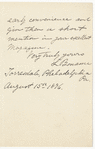 early convenience and
give them a short
mention in your excellent
Magazine.
Very truly yours
Torresdale, Philadelphia
Pa.
August 15th 1896.